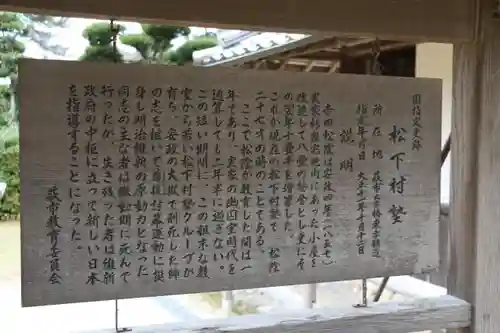 国指定史跡
松下村塾
所在地　萩市大字椿東字新道
指定年月日　大正十一年十月十二日
説明
吉田松陰は安政四年（一八五七）
実家杉家宅地内にあった小屋を
改造して八畳の塾舎とし更にそ
の翌年十畳半を増築した。
これが現在の松下村塾で　松陰
二十七才の時のことである。
ここで松陰が教育した間は一
年であり、実家の幽囚室時代を
通算しても二年半に過ぎない。
この短い期間に、この粗末な教
室から若い松下村塾グループが
育ち、安政の大獄で刑死した師
の志を継いで尊攘討幕運動に挺
身し明治維新の原動力となった
同志の主な者は激動期に死んで
行ったが、生き残った者は維新
政府の中枢に立って新しい日本
を指導することになった。
萩市教育委員会